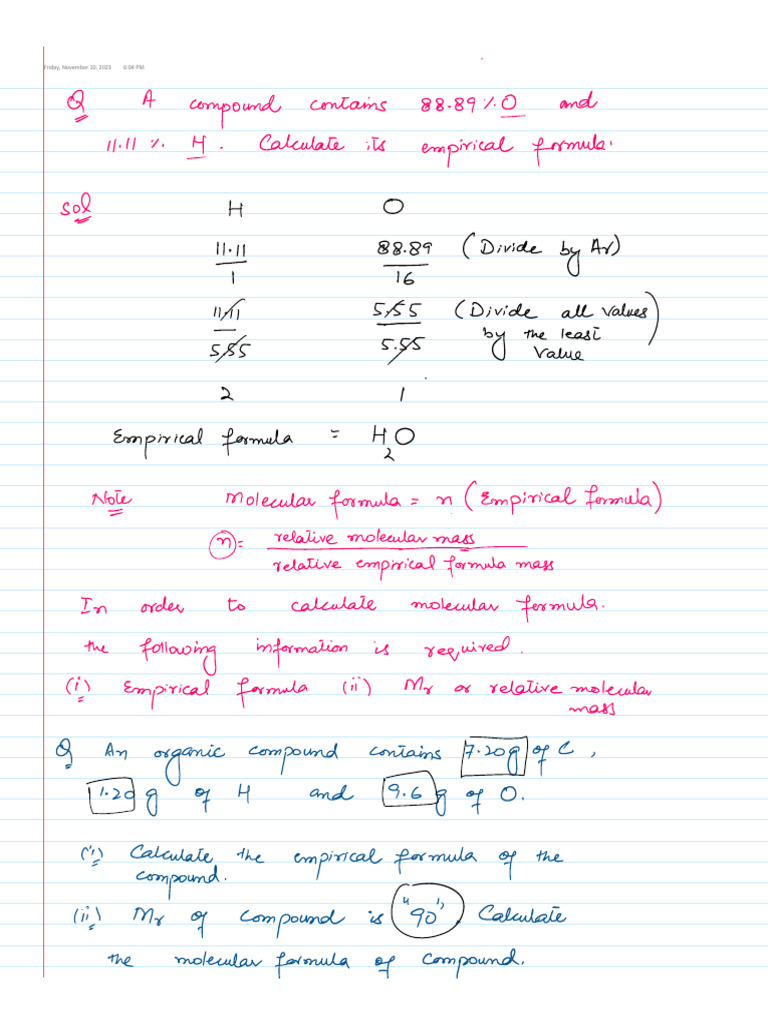 Friday, November 10, 2023 6:04 PM
Q A compound contains 88.89% O and
11.11 %. H. Calculate its empirical formula.
Sol H O
11.11 88.89 (Divide by Ar)
1 16
11.11 5.55 (Divide all values
5.55 5.55 by the least
value)
2 1
Empirical formula = H2O
Note Molecular formula = n (Empirical formula)
n = relative molecular mass
relative empirical formula mass
In order to calculate molecular formula.
the following information is required.
(i) Empirical formula (ii) Mr or relative molecular
mass
Q An organic compound contains 7.20g of C,
1.20 g of H and 9.6 g of O.
(i) Calculate the empirical formula of the
compound.
(ii) Mr of compound is "90". Calculate
the molecular formula of compound.